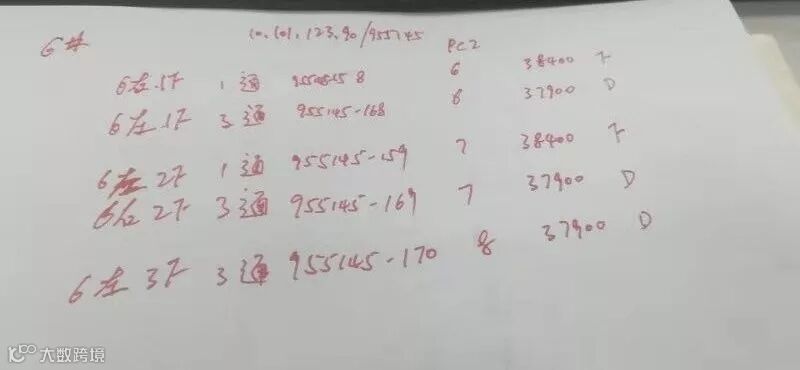 6# 10.101.123.90/955145 PC2
6左1F 1通 8 6 38400 F
6左1F 3通 955145-168 8 37900 D
6左2F 1通 955145-159 7 38400 F
6左2F 3通 955145-169 7 37900 D
6左3F 3通 955145-170 8 37900 D
大数跨境